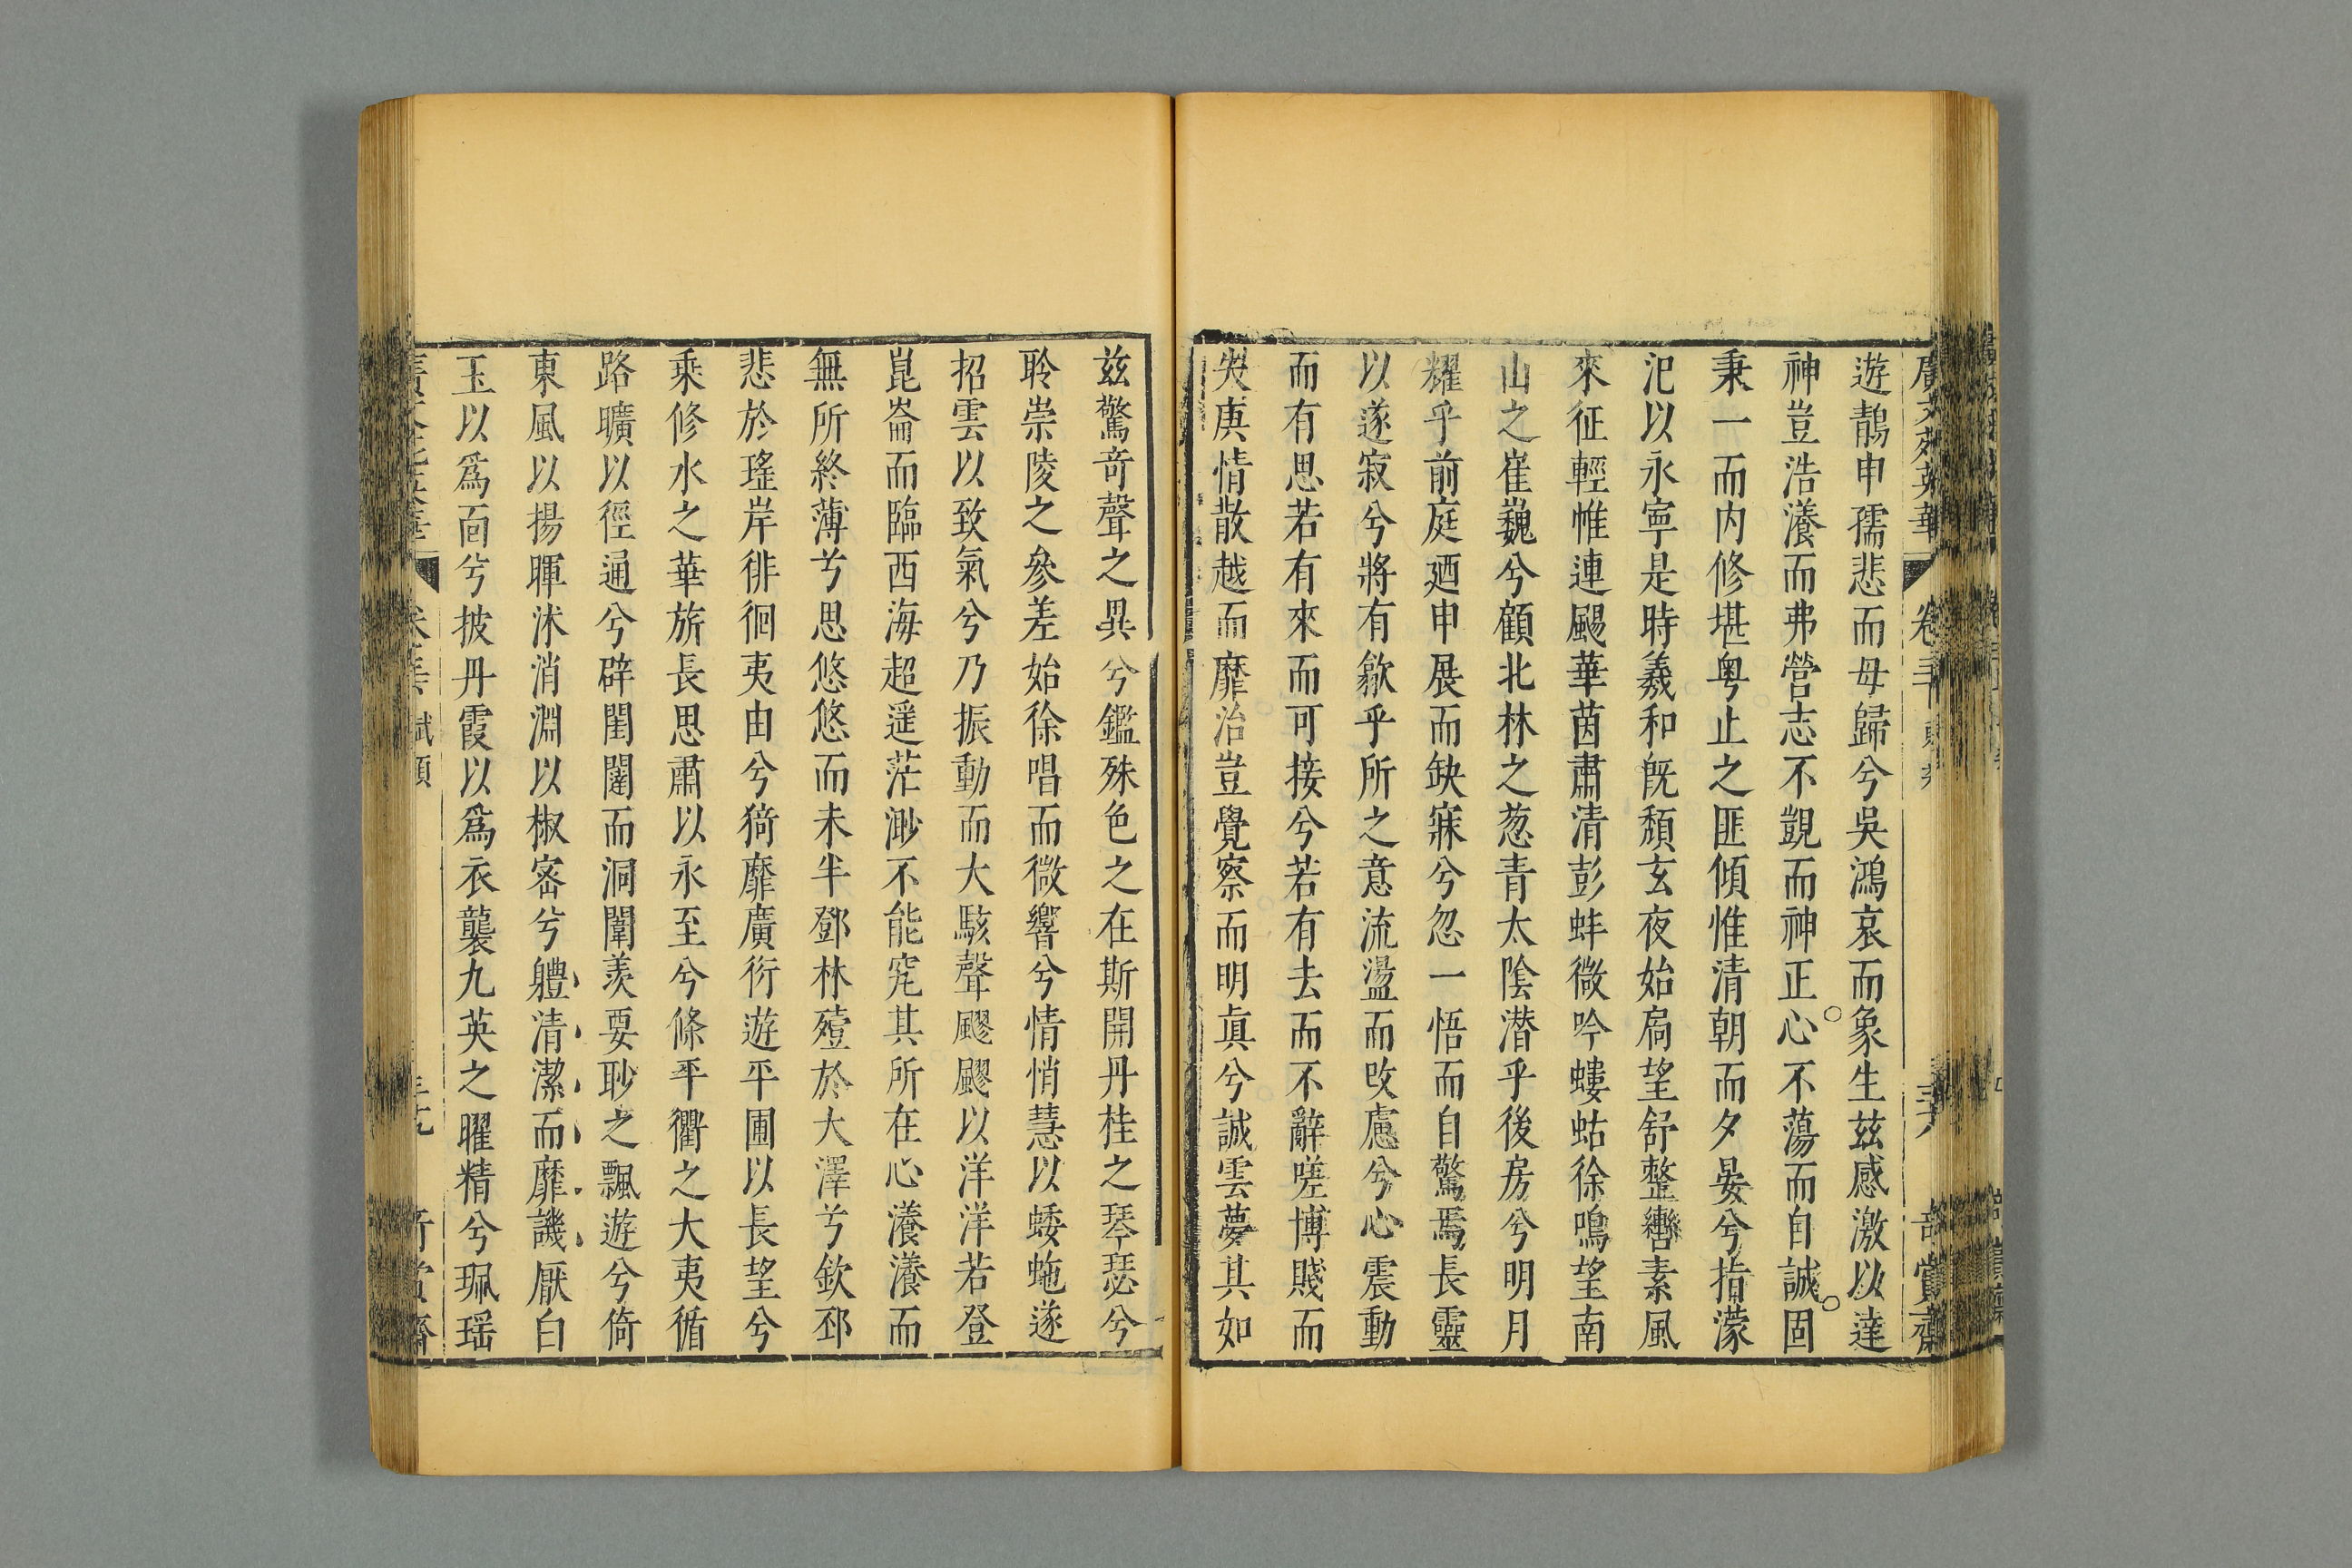 廣文苑英華 卷三 奇賞齋
遊鶄申孺悲而毋歸兮吳鴻哀而象生茲感激以達
神豈浩瀁而弗營志不覬而神正心不蕩而自誠固
秉一而内修堪粤止之匪傾惟清朝而夕晏兮指濛
汜以永寜是時羲和旣頹玄夜始扃望舒整轡素風
來征輕帷連颺華茵肅清彭蚌微吟螻蛄徐鳴望南
山之崔巍兮顧北林之葱青太陰潜乎後房兮明月
耀乎前庭廼申展而缺寐兮忽一悟而自驚焉長靈
以遂寂兮將有歙乎所之意流盪而改慮兮心震動
而有思若有來而可接兮若有去而不辭嗟博賤而
失庚情散越而靡治豈覺察而明眞兮誠雲夢其如
茲驚竒聲之異兮鑑殊色之在斯開丹桂之琴瑟兮
聆崇陵之參差始徐唱而微響兮情悄慧以蜲虵遂
招雲以致氣兮乃振動而大駭聲飂飂以洋洋若登
崑崙而臨西海超遥茫渺不能究其所在心瀁瀁而
無所終薄兮思悠悠而未半鄧林殪於大澤兮欽邳
悲於瑤岸徘徊夷由兮猗靡廣衍遊平圃以長望兮
乘修水之華旂長思肅以永至兮條平衢之大夷循
路曠以徑通兮辟閨闥而洞闈羡要眇之飄遊兮倚
東風以揚暉沐消淵以椒宻兮軆清潔而靡譏厭白
玉以爲面兮披丹霞以爲衣襲九英之曜精兮珮瑶
賦類